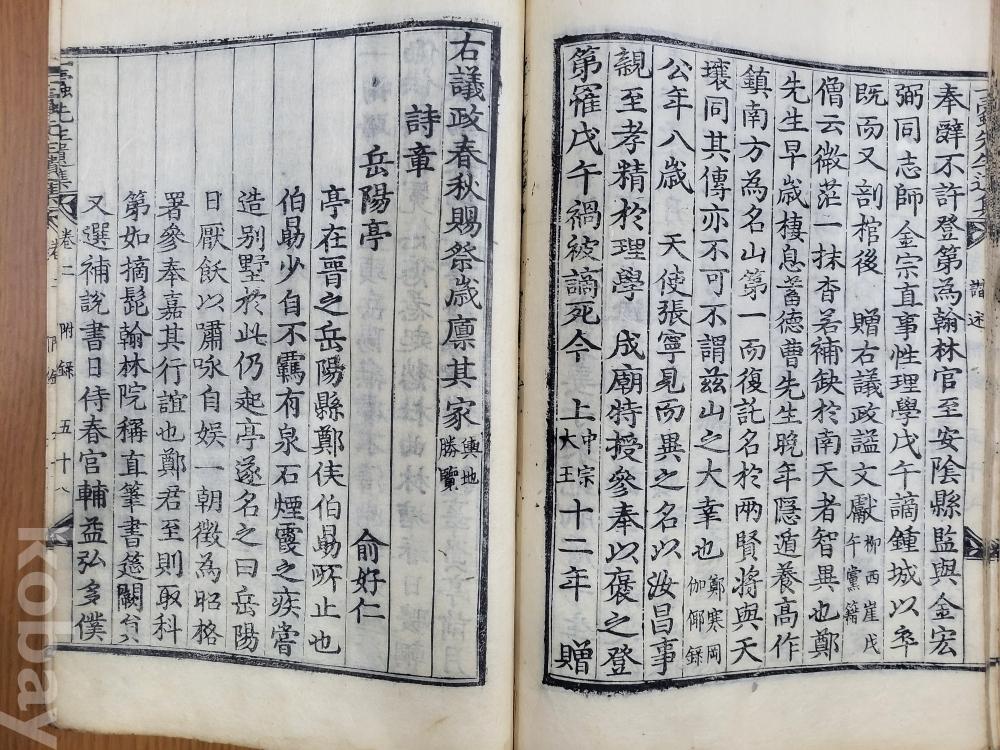 奉辭不許登第為翰林官至安陰縣監與金宏
弼同志師金宗直事性理學戊午謫鍾城以卒
既而又剖棺後 贈右議政謚文獻柳西崖戊午黨籍
僧云微茫一抹杳若補缺於南天者智異也鄭
先生早歲棲息蓄德曹先生晚年隱遁養高作
鎮南方為名山第一而復託名於兩賢將與天
壤同其傳亦不可不謂茲山之大幸也鄭寒岡伽倻錄
公年八歲 天使張寧見而異之名以汝昌事
親至孝精於理學 成廟特授參奉以褒之登
第罹戊午禍被謫死今 上中宗大王十二年 贈
右議政春秋賜祭歲廩其家輿地勝覽
詩章
岳陽亭 俞好仁
亭在晋之岳陽縣鄭侯伯勗所止也
伯勗少自不羈有泉石煙霞之疾嘗
造别墅於此仍起亭遂名之曰岳陽
日厭飫以嘯咏自娛一朝徵為昭格
署參奉嘉其行誼也鄭君至則取科
第如摘髭翰林院稱直筆書筵闕台
又選補說書日侍春官輔益弘多僕
卷二 附錄 五十八
kobay